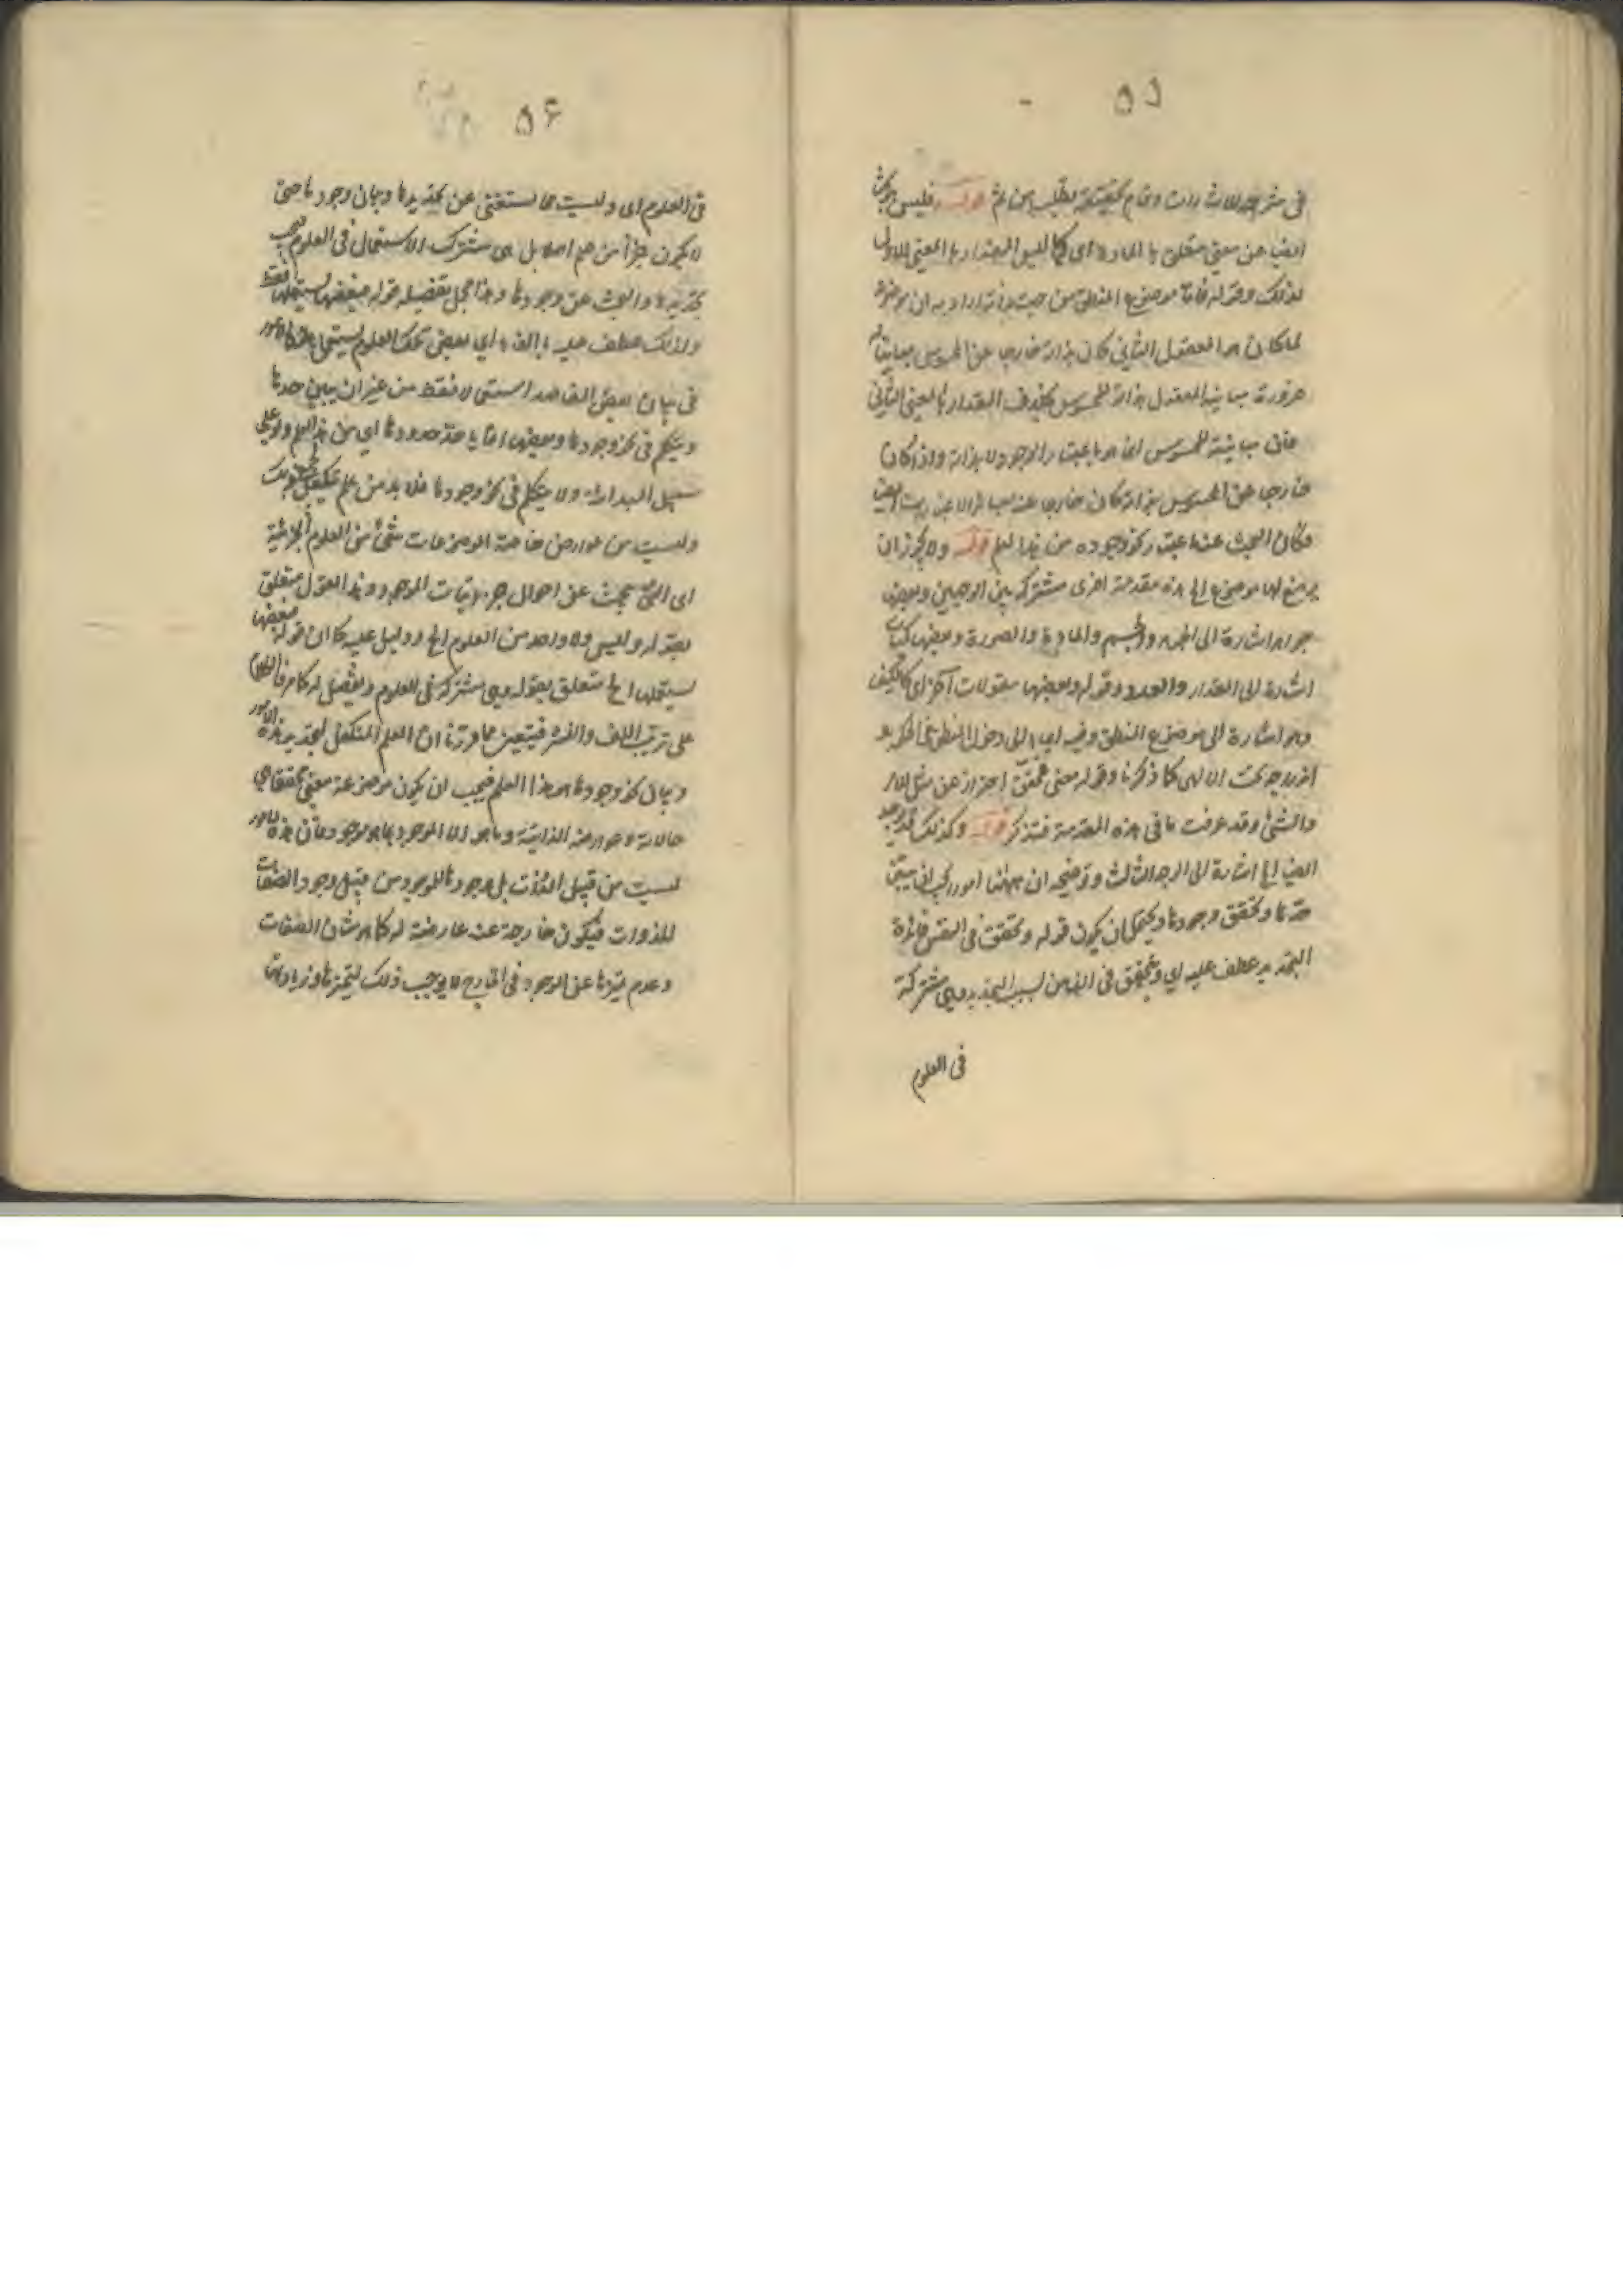 ٥٥
في شرحه للاشارات وتمام تحقيقه يطلب من ثم قوله فليس هو بحث
ايضا عن معنى متعلق بالمادة اي كما ليس المقدار بالمعنى الاول
لذلك وقوله فاما موضوع المنطق من جهة ذاته اراد به ان موضوع
لما كان هو المعقول الثاني كان بذاته خارجا عن المحسوس مباينا له
ضرورة مباينة المعقول بذاته للمحسوس بخلاف المقدار بالمعنى الثاني
فان مباينته للمحسوس انما هو باعتبار الوجود لا بذاته واذا كان
خارجا عن المحسوس بذاته كان خارجا عنه بسائر الاعتبارات ايضا
فكان البحث عنه باعتبار نحو وجوده من هذا العلم قوله ولا يجوز ان
يوضع لها موضوع الخ هذه مقدمة اخرى مشتركة بين الوجهين وبعضها
جواهر اشارة الى الجوهر والجسم والمادة والصورة وبعضها كميات
اشارة الى المقدار والعدد وقوله وبعضها مقولات اخرى كالكيف
وهو اشارة الى موضوع المنطق وفيه ايماء الى دخول المنطق في الحكمة
اندراجه تحت الالهي كما ذكرنا وقوله معنى محقق احتراز عن مثل الامر
والشيء وقد عرفت ما في هذه المقدمة فتذكر قوله وكذلك قد يوجد
ايضا الخ اشارة الى الوجه الثالث وتوضيحه ان ههنا امور يجب ان يتبين
حدها وتحقق وجودها ويحتمل ان يكون قوله وتحقق في النفس فائدة
التحديد عطف عليه اي ويتحقق في الذهن بسبب التحديد وهي مشتركة
في العلوم
٥٦
في العلوم اي وليست مما يستغنى عن تحديدها وبيان وجودها حتى
لا يكون جزأ من علم اصلا بل هي مشتركة الاستعمال في العلوم فيجب
تحديدها والبحث عن وجودها وهذا مجمل تفصيله قوله فبعضها يستعملها فقط
ولذلك عطف عليه بالفاء اي بعض تلك العلوم يستعمل هذه الامور
في بيان بعض المقاصد استعمالا فقط من غير ان يبين حدها
ويتكلم في نحو وجودها وبعضها انما ياخذ حدودها اي من هذا العلم او على
سبيل المبدائية ولا يتكلم في نحو وجودها فلا بد من علم يتكفل بذلك
وليست من عوارض خاصة لموضوعات شيء من العلوم الجزئية
اي التي تبحث عن احوال جزئيات الموجود وهذا القول متعلق
بقوله وليس ولا واحد من العلوم الخ ودليل عليه كما ان قوله فبعضها
يستعملها الخ متعلق بقوله وهي مشتركة في العلوم وتفصيل له كما مر فالكلام
على ترتيب اللف والنشر فيتبين مما قررنا ان العلم المتكفل لتحديد هذه الامور
وبيان نحو وجودها هو هذا العلم فيجب ان يكون موضوعه معنى محققا هي
حالاته وعوارضه الذاتية وما هو الا الموجود بما هو موجود فان هذه الامور
ليست من قبيل الذوات بل وجودها للموجود من قبيل وجود الصفات
للذوات فيكون خارجة عنه عارضة له كما هو شان الصفات
وعدم تميزها عن الوجود في الخارج لا يوجب ذلك لتميزها وزيادتها